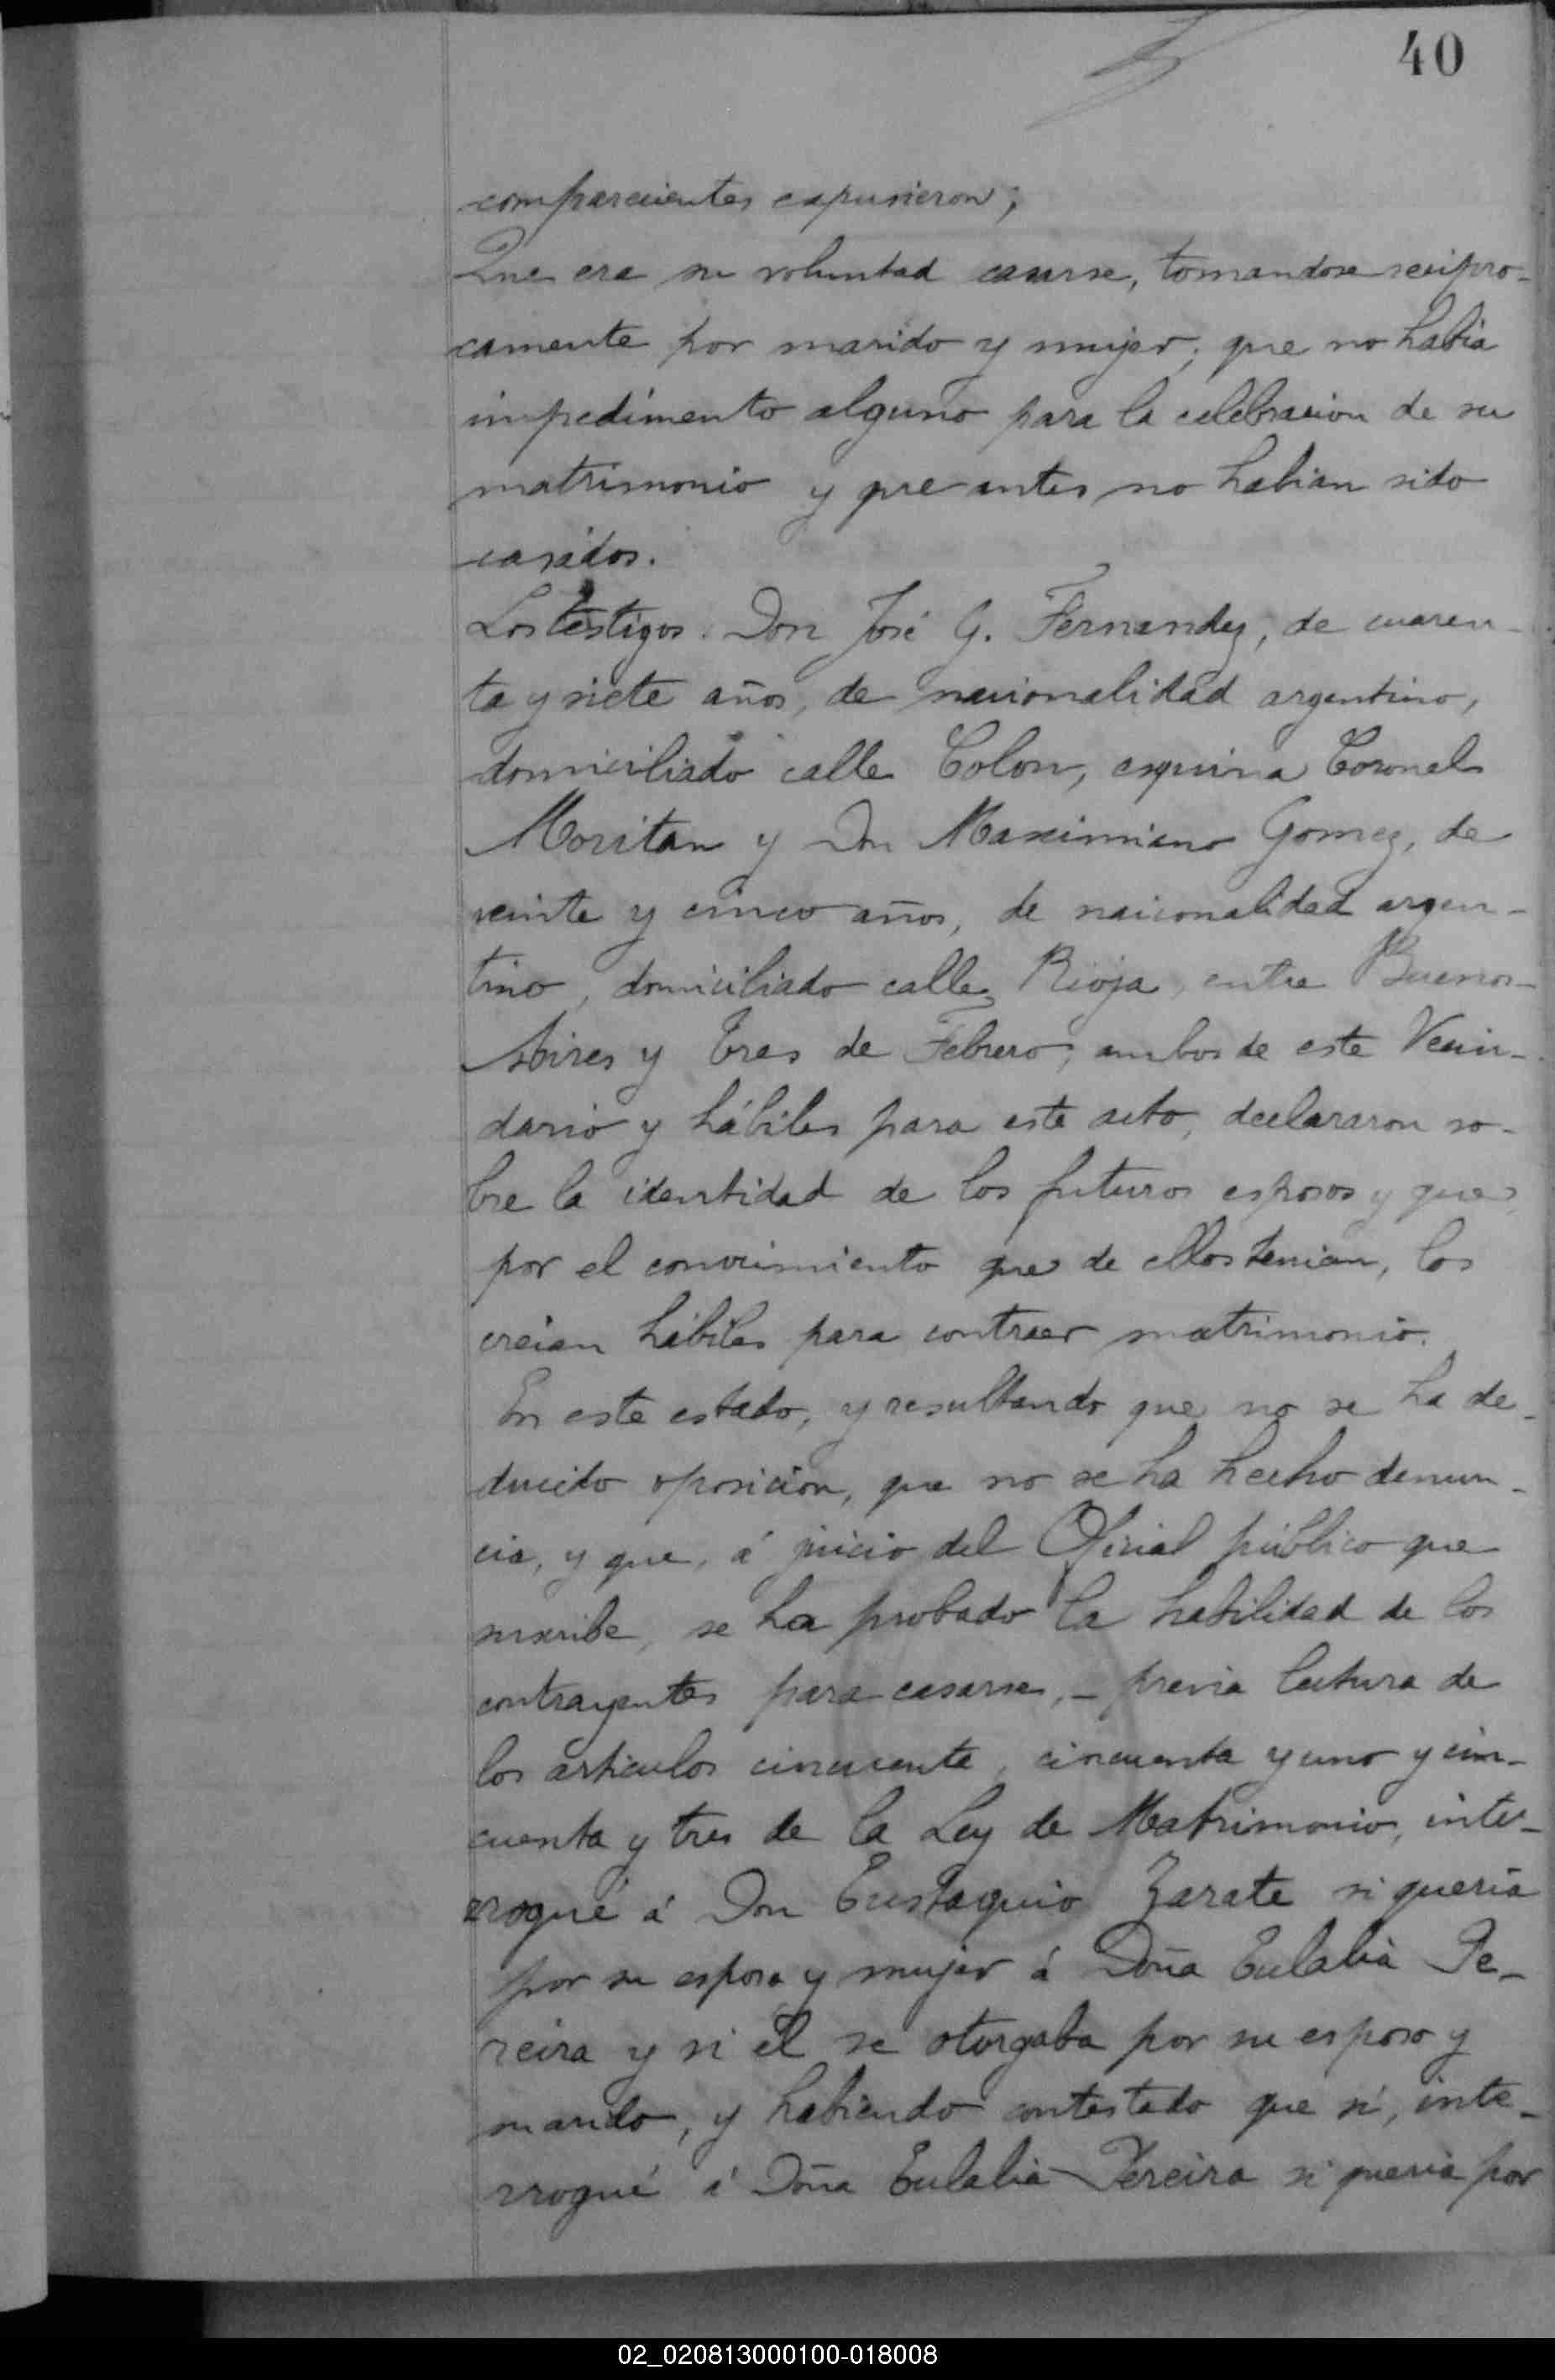 40
comparecientes expusieron;
Que era su voluntad casarse, tomandose recipro-
camente por marido y mujer; que no habia
impedimento alguno para la celebracion de su
matrimonio y que antes no habian sido
casados.
Los testigos Don José G. Fernandez, de cuaren-
ta y siete años, de nacionalidad argentino,
domiciliado calle Colon, esquina Coronel
Moritan y Don Maximiano Gomez, de
veinte y cinco años, de nacionalidad argen-
tino, domiciliado calle Rioja, entre Buenos-
Aires y Tres de Febrero, ambos de este Vecin-
dario y hábiles para este acto, declararon so-
bre la identidad de los futuros esposos y que
por el conocimiento que de ellos tenian, los
creian hábiles para contraer matrimonio.
En este estado, y resultando que no se ha de-
ducido oposicion, que no se ha hecho denun-
cia, y que, á juicio del Oficial público que
suscribe, se ha probado la habilidad de los
contrayentes para casarse, - previa lectura de
los articulos cincuenta, cincuenta y uno y cin-
cuenta y tres de la Ley de Matrimonio, inte-
rrogué á Don Eustaquio Zarate si queria
por su esposa y mujer á Doña Eulalia Pe-
reira y si él se otorgaba por su esposo y
marido, y habiendo contestado que si, inte-
rrogué á Doña Eulalia Pereira si queria por
02_020813000100-018008